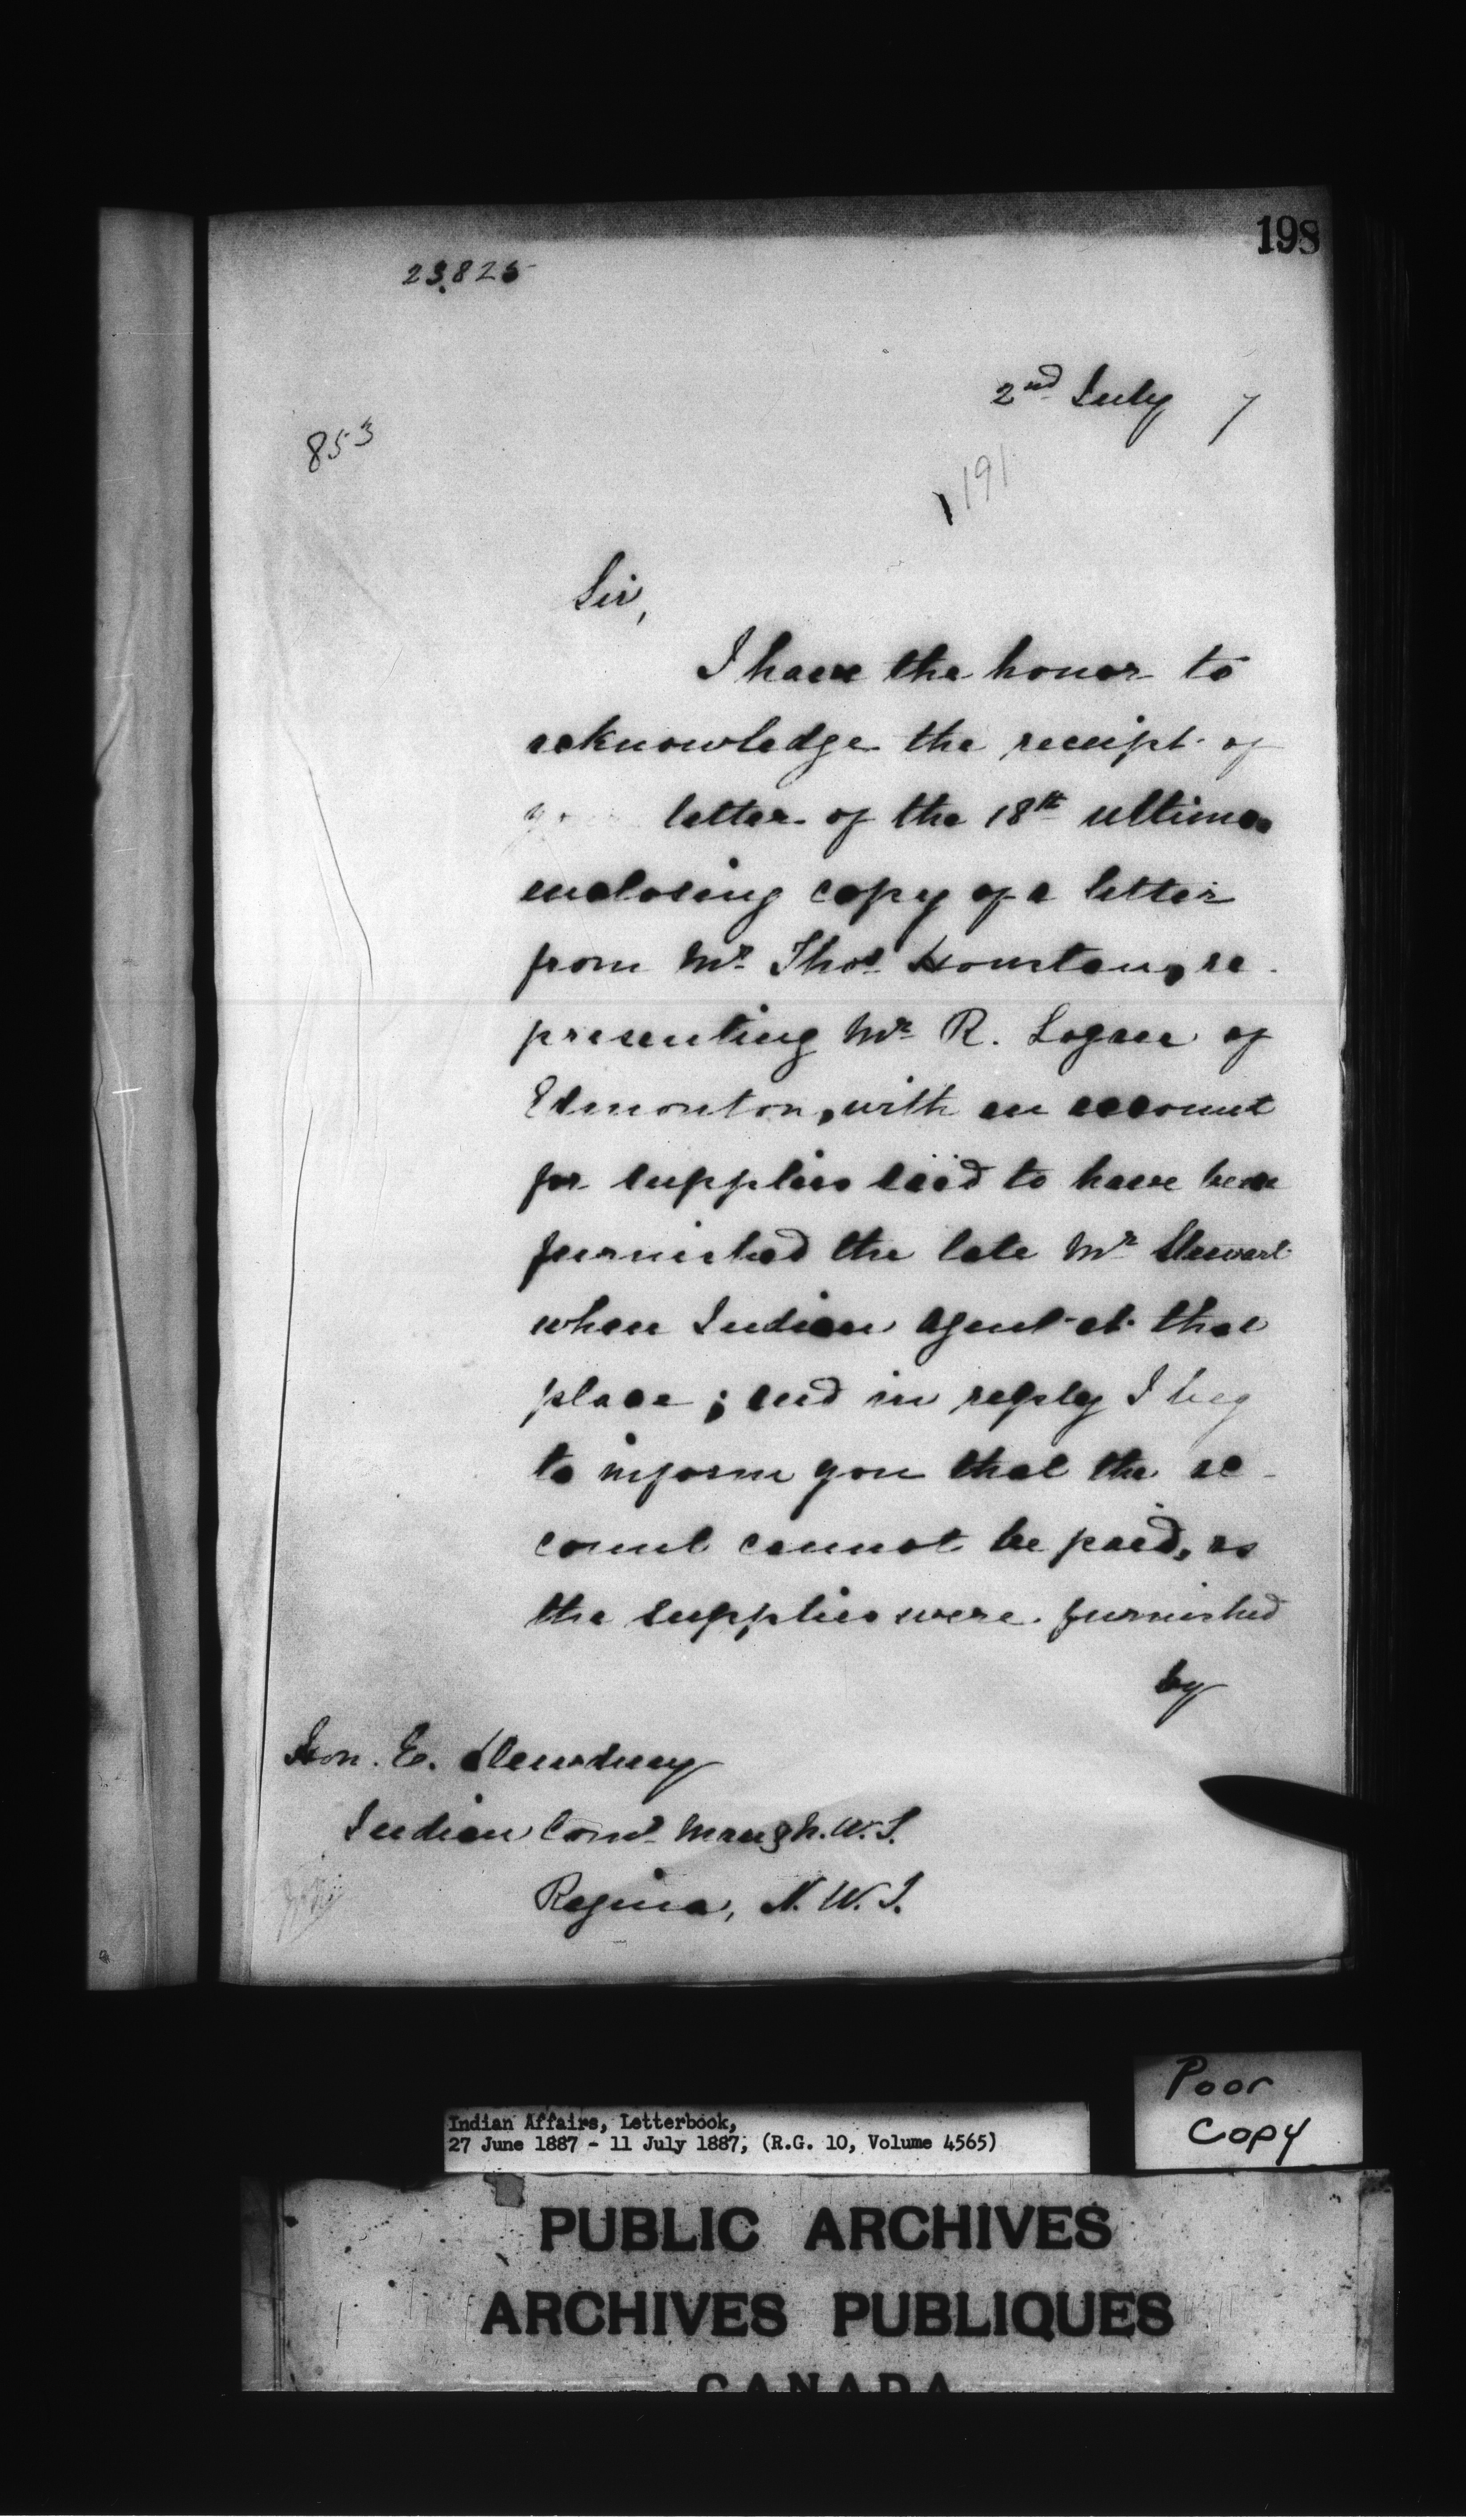 198
23.825
2nd July 7
853
191
Sir,
I have the honor to
acknowledge the receipt of
your letter of the 18th ultimo
enclosing copy of a letter
from Mr Thos Houston, re-
presenting Mr R. Logan of
Edmonton, with an account
for supplies said to have been
furnished the late Mr Stewart
when Indian Agent at that
place; and in reply I beg
to inform you that the ac-
count cannot be paid, as
the supplies were furnished
by
Hon. E. Dewdney
Indian Comr Man & N.W.T.
Regina, N.W.T.
Poor
Copy
Indian Affairs, Letterbook,
27 June 1887 - 11 July 1887, (R.G. 10, Volume 4565)
PUBLIC ARCHIVES
ARCHIVES PUBLIQUES
CANADA